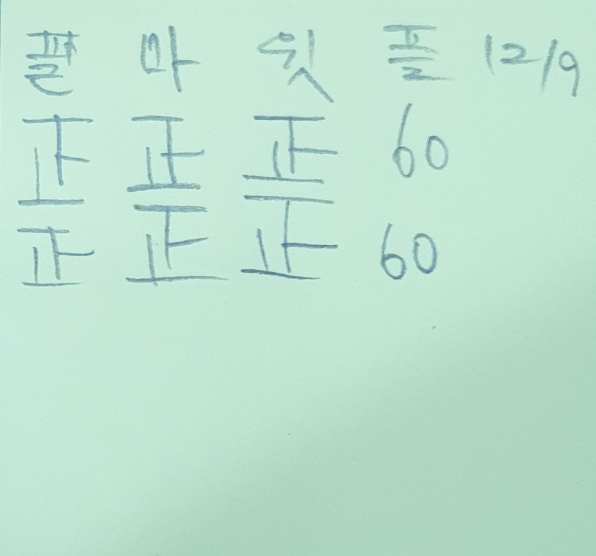 팔 마 윗 플 12/9
正 正 正 60
正 正 正 60